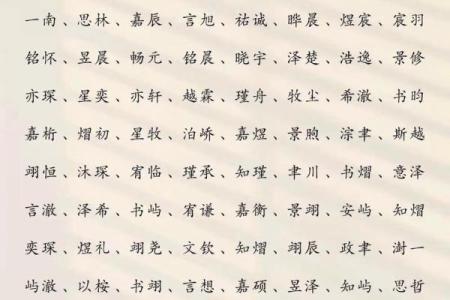 一南、思林、嘉辰、言旭、祐诚、晔晨、煜宸、宸羽
铭怀、昱晨、畅元、铭晨、晓宇、泽楚、浩逸、景修
亦琛、星奕、亦轩、越霖、瑾舟、牧尘、希澈、书昀
嘉桁、熠初、星牧、泊峤、嘉煜、景煦、淙聿、斯越
翊恒、沐琛、宥临、瑾承、知瑾、聿川、书熠、意泽
言澈、泽希、书屿、宥谦、嘉衡、景翊、安屿、知熠
奕琛、煜礼、翊尧、文钦、知熠、翊辰、政聿、澍一
屿澈、以桉、书翊、言想、嘉硕、昱泽、知屿、思哲